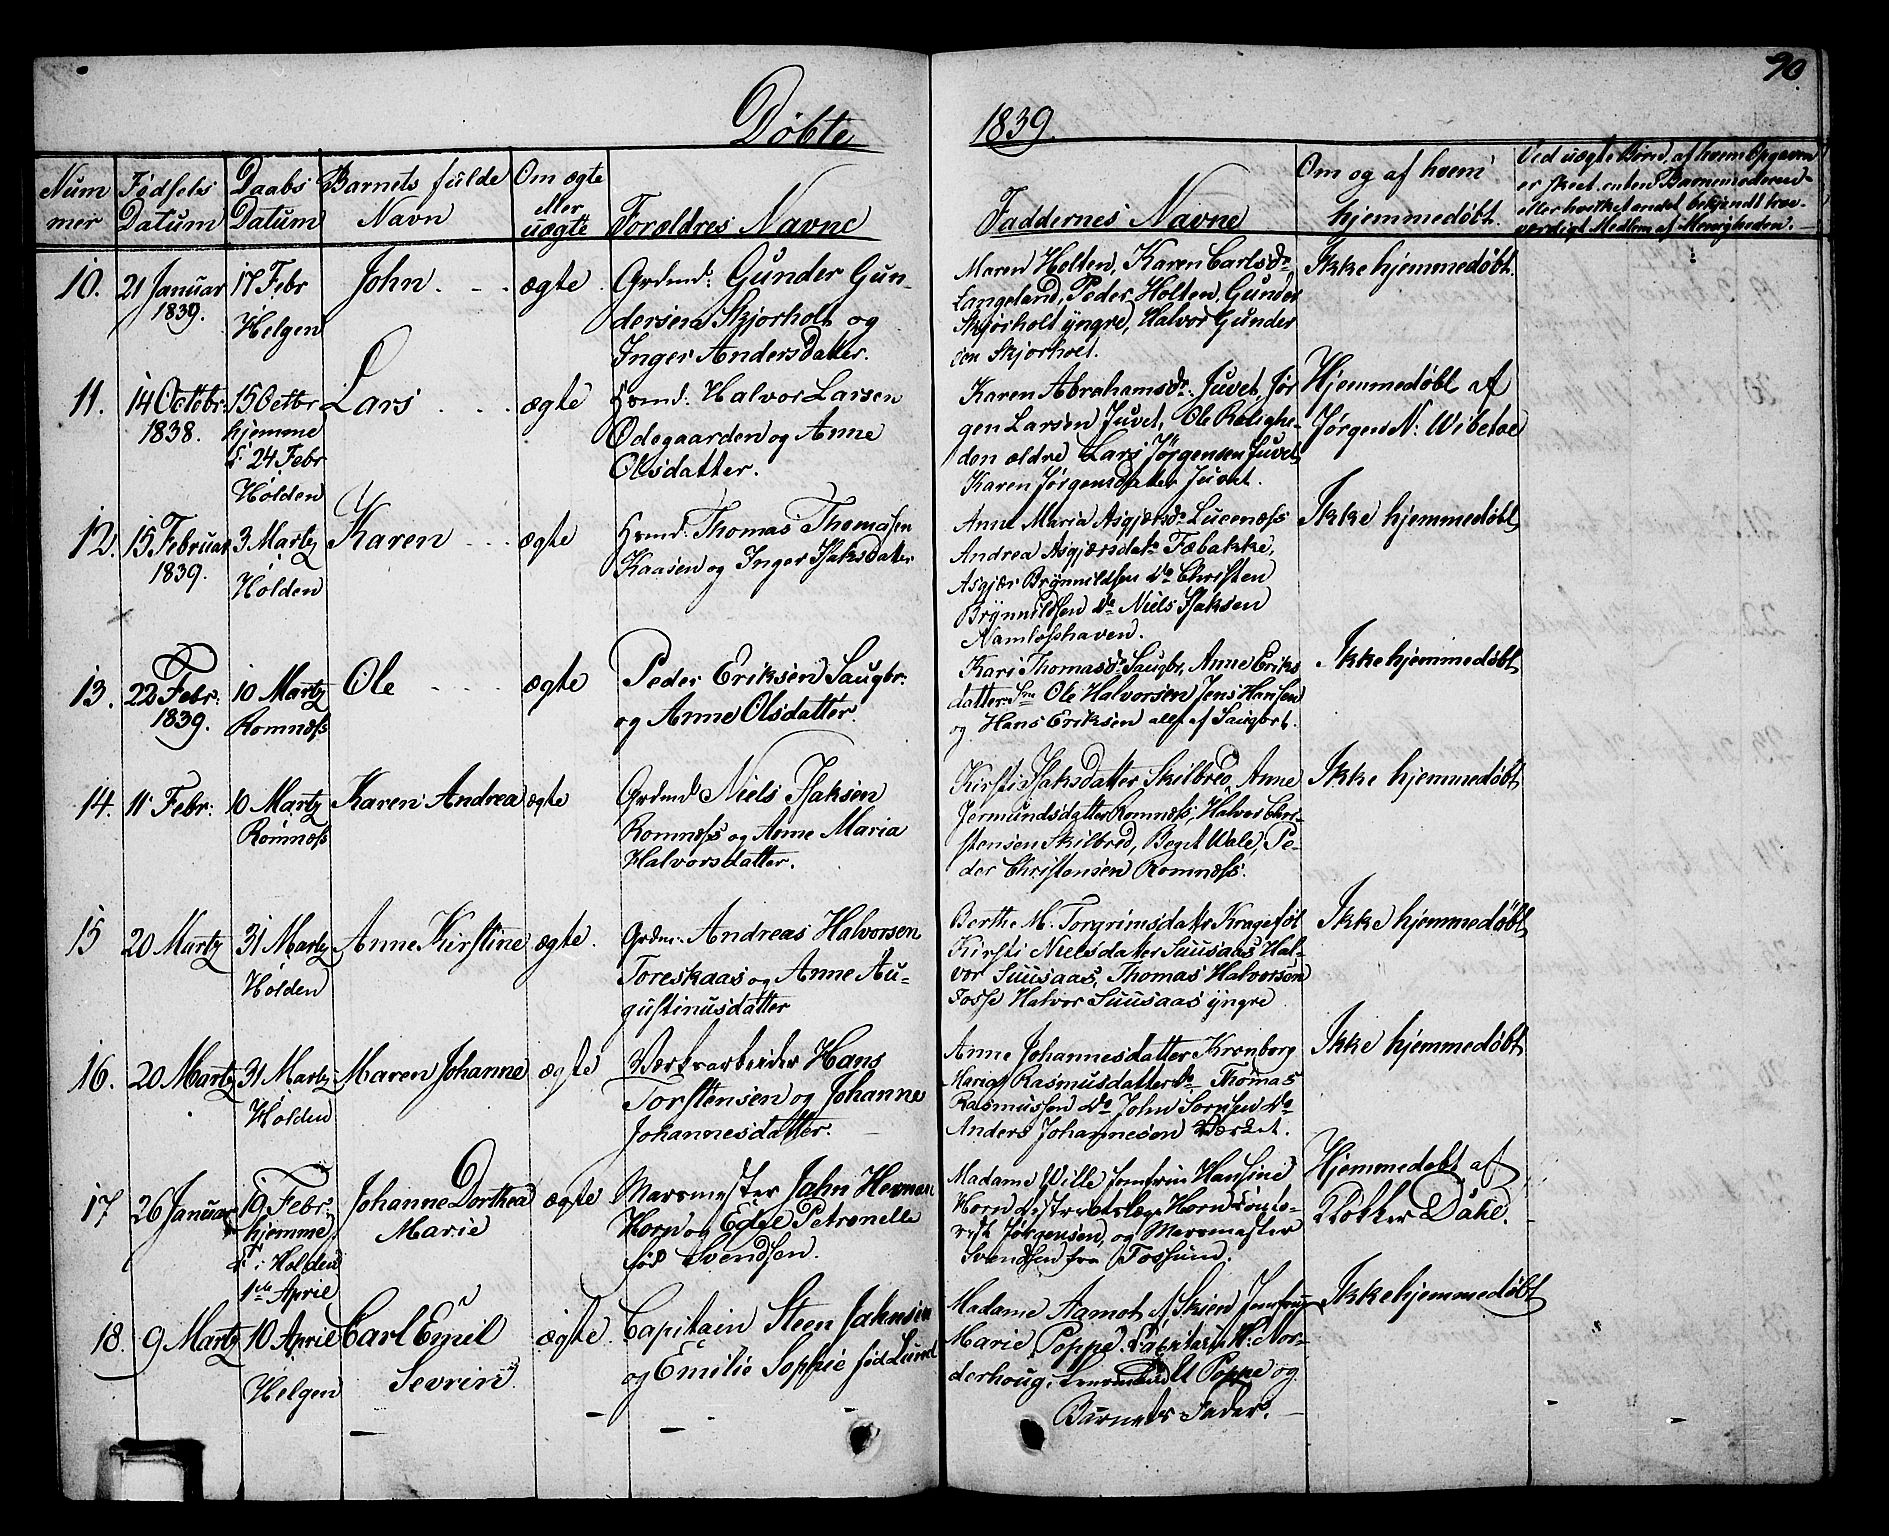 90.
Døbte 1839.
Num
mer
Fødsels
Datum
Daabs
Datum
Barnets fulde
Navn
Om ægte
eller
uægte
Forældres Navne
Faddernes Navne
Om og af hvem
hjemmedøbt.
Ved uægte Børn, af hvem Opgaven
er skeet, enten Barnemoderen
eller hvilket andet bekjendt troe-
værdigt Medlem af Menigheden.
10.
21 Januar
1839.
17 Febr
Helgen
John
ægte
Grdmd: Gunder Gun-
dersen Skjorholt og
Inger Andersdatter.
Maren Holten, Karen Carlsdr
Langeland, Peder Holten, Gunder
Skjørholt yngre, Halvor Gunder
sen Skjorholt.
Ikke hjemmedøbt.
11.
14 Octobr:
1838.
15 Octbr
hjemme
24 Febr
Holden
Lars
ægte
Hsmd: Halvor Larsen
Ødegaarden og Anne
Olsdatter.
Karen Abrahamsdr. Juvet, Jør
gen Larsen Juvet, Ole Rolighe-
den ældre Lars Jørgensen Juvet,
Karen Jørgensdatter Juvet.
Hjemmedøbt af
Jørgen N: Wibetoe
12.
15 Februar
1839.
3 Martz
Holden
Karen
ægte
Hsmd: Thomas Thomassen
Kaasen og Inger Isaksdatter
Anne Maria Asgjærsdr Lucenæss
Andrea Asgjærsdatr Fæbakke,
Asgjær Brynnildsen do Christen
Brynnildsen do Niels Isaksen
Namløshaven.
Ikke hjemmedøbt
13.
22 Febr:
1839.
10 Martz
Romnæss
Ole
ægte
Peder Eriksen Saugbr:
og Anne Olsdatter.
Kari Thomasdr Saugbr, Anne Eriks
datter Ole Halvorsen Jens Hansen
og Hans Eriksen alle af Saugbrt.
Ikke hjemmedøbt
14.
11 Febr:
10 Martz
Romnæss
Karen Andrea
ægte
Grdmd: Niels Isaksen
Romnæss og Anne Maria
Halvorsdatter.
Kirsti Isaksdatter Skilbred, Anne
Jermundsdatter Romnæss, Halvor Chri-
stensen Skilbred, Wale, Pe-
der Christensen Romnæss.
Ikke hjemmedøbt
15
20 Martz
31 Martz
Holden
Anne Kirstine
ægte.
Grdm: Andreas Halvorsen
Toreskaas og Anne Au-
gustinusdatter
Berthe M. Torgrimsdatr Kragefot
Kirsti Nielsdatter Suusaas Hal-
vor Suusaas, Thomas Halvorsen
Fosse Halvor Suusaas yngre
Ikke hjemmedøbt
16.
20 Martz
31 Martz
Holden
Maren Johanne
ægte
Verksarbeider Hans
Torstensen og Johanne
Johannesdatter.
Anne Johannesdatter Kronborg
Rasmusdatter do Thomas
Rasmussen do John Sornsen do
Anders Johannesen Værket.
Ikke hjemmedøbt
17
26 Januar
19 Febr:
hjemme,
i Holden
1ste April
Johanne Dorthea
Marie
ægte
Marsmester Jahn Herman
Horn og Petronelle
fød Svendsen.
Madame Wille Jomfru Hansine
Horn districtslæge Horn
Jørgensen, og Marsmester
Svendsen fra Fossum.
Hjemmedøbt af
Klokker Dahl.
18.
9 Martz
10 April
Helgen
Carl Emil
Sevrin
ægte.
Capitain Steen Jahnsen
og Emilie Sophie fød Lund
Madame Aamot af Skien Jomfru
Marie Poppe. Capitain Nor-
derhoug, Poppe og
Barnets Fader.
Ikke hjemmedøbt